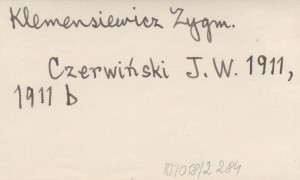 Klemensiewicz Zygm.
Czerwiński J. W. 1911,
1911 b